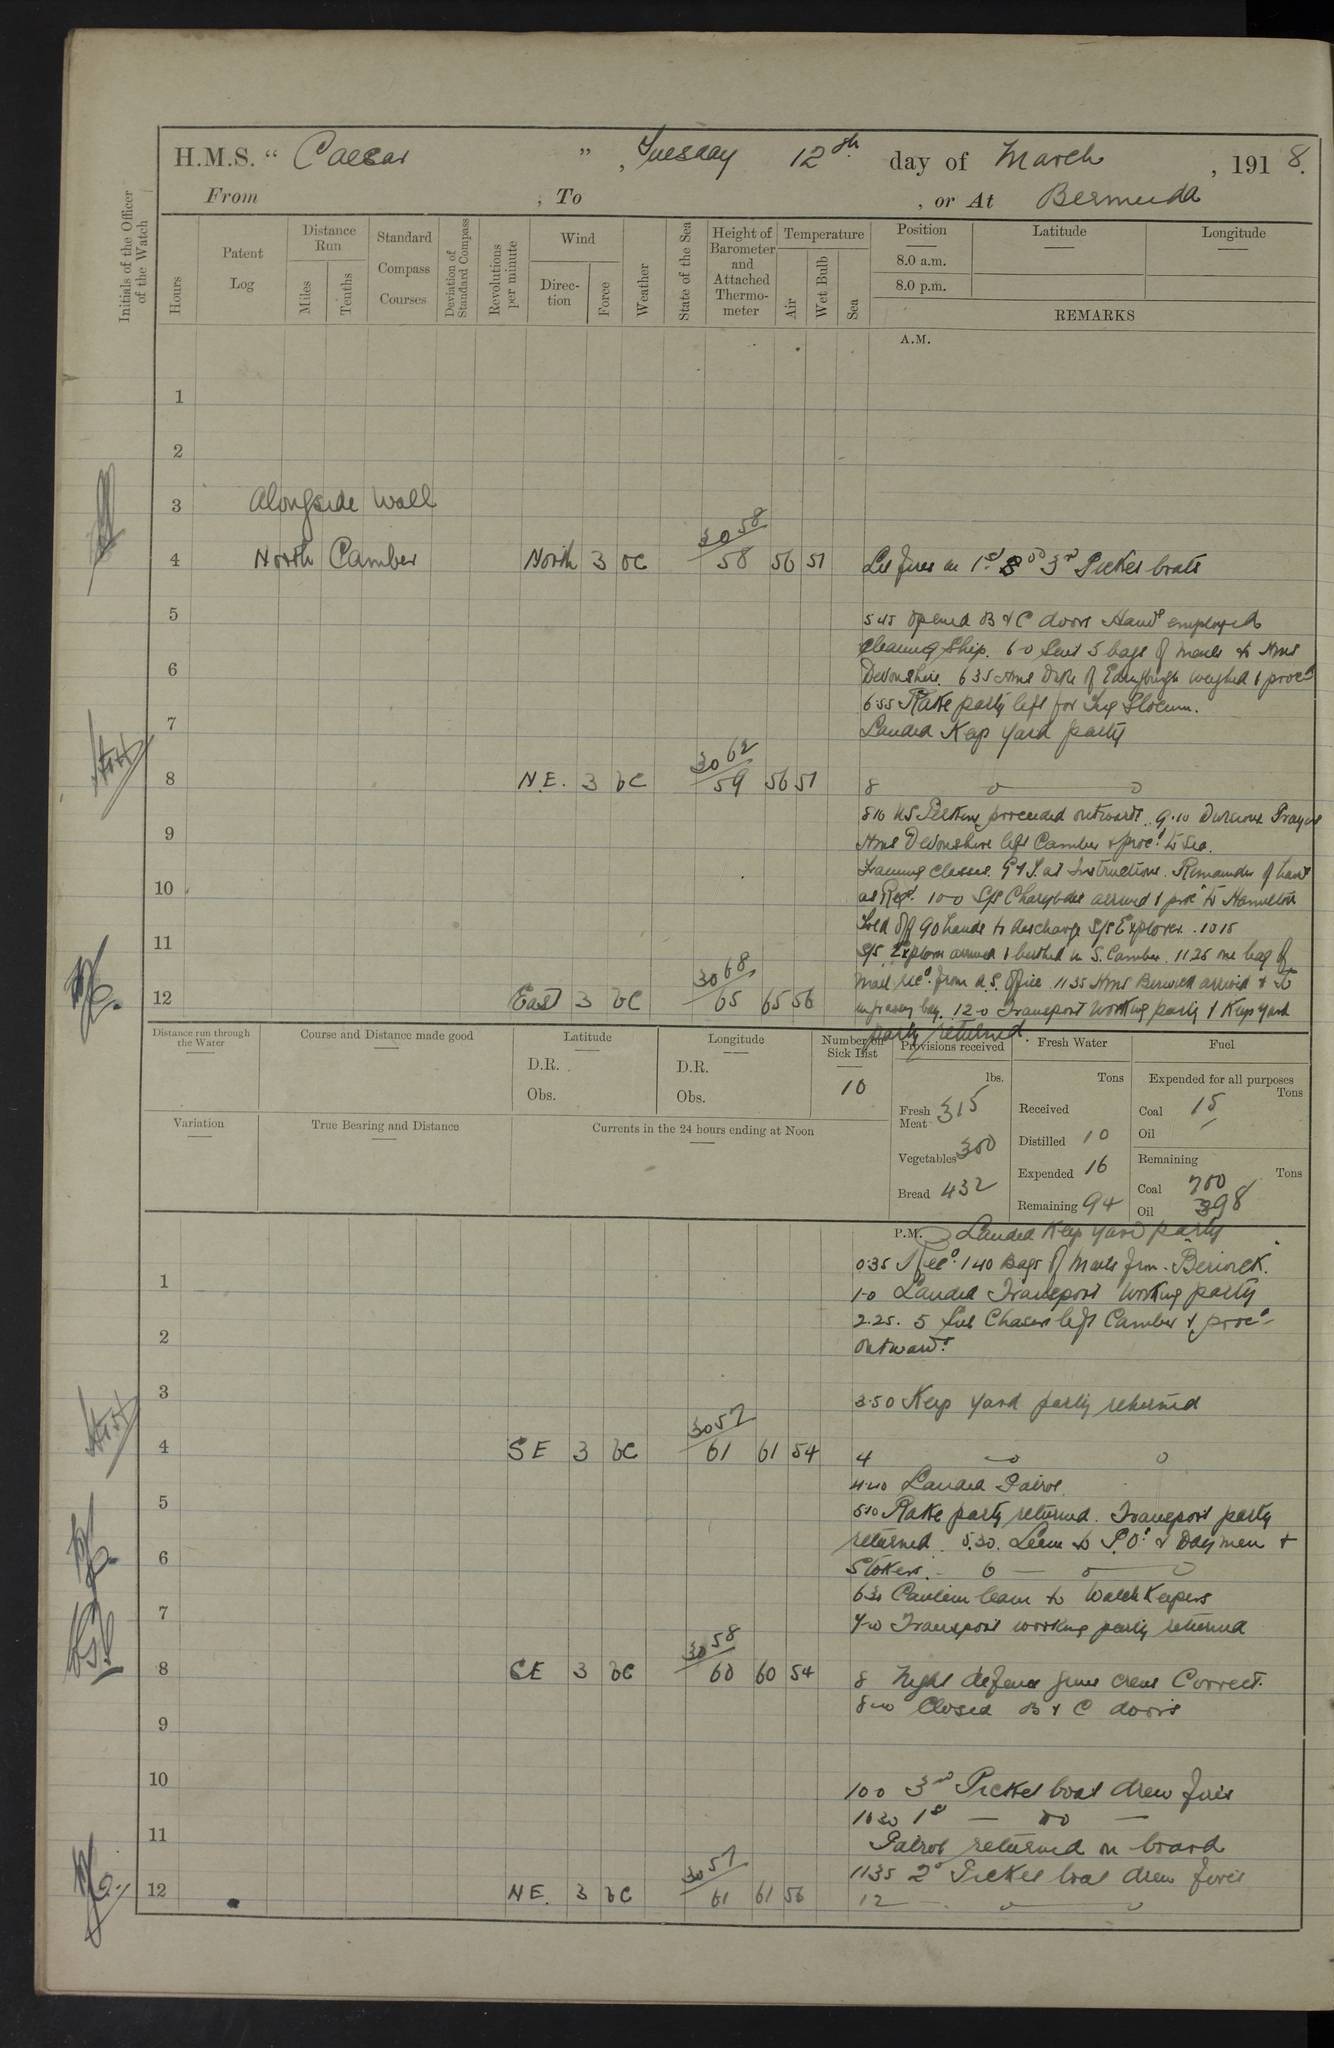 H.M.S. "Caesar", Tuesday 12th day of March, 1918.
From , To , or At Bermuda
Initials of the Officer of the Watch
Hours
Patent Log
Distance Run
Miles
Tenths
Standard Compass Courses
Deviation of Standard Compass
Revolutions per minute
Wind
Direction
Force
Weather
State of the Sea
Height of Barometer and Attached Thermometer
Temperature
Air
Wet Bulb
Sea
Position
8.0 a.m.
8.0 p.m.
Latitude
Longitude
REMARKS
A.M.
1
2
3 Alongside Wall
4 North Camber North 3 bc 30 58 / 58 56 51 Lit fires in 1st 2nd 3rd Picket boats
5 5.45 Opened B & C doors Hands employed
cleaning Ship. 6-0 Sent 5 bags of mails to HMS
6 Devonshire. 6 35 HMS Duke of Edinburgh weighed & procd
6 55 Rake party left for Tug
7 Landed Keep Yard party
8 N.E. 3 bc 30 62 / 59 56 51 8
8 10 US proceeded outwards. 9.10 Divisions Prayers
9 HMS Devonshire left Camber & procd to Sea.
Training Classes. G & T. at Instructions. Remainder of hands
10 as Reqd. 10-0 S/S Charybdis arrived & procd to Hamilton
Told off 90 hands to discharge S/S Explorer. 10 15
11 S/S Explorer arrived & berthed in S. Camber. 11 25 one bag of
mail recd. from office 11 35 HMS Berwick arrived &
12 East 3 bc 30 68 / 65 65 56 in Grassy bay. 12-0 Transport Working party & Keep Yard
party returned.
Distance run through the Water
Course and Distance made good
Latitude
D.R.
Obs.
Longitude
D.R.
Obs.
Number on Sick List
10
Provisions received
lbs.
Fresh Meat 315
Vegetables 300
Bread 432
Fresh Water
Tons
Received
Distilled 10
Expended 16
Remaining 94
Fuel
Expended for all purposes
Tons
Coal 15
Oil
Remaining
Tons
Coal 700
Oil 398
Variation
True Bearing and Distance
Currents in the 24 hours ending at Noon
P.M. Landed Keep Yard party
0.35 Recd. 140 Bags of Mails from "Berwick"
1 1-0 Landed Transport Working party
2.25. 5 Sub Chasers left Camber & procd
2 outwards.
3 3.50 Keep Yard party returned
4 SE 3 bc 30 57 / 61 61 54 4
4 40 Landed Patrol.
5 5 10 Rake party returned. Transport party
returned. 5.30. Leave to P.O.s & Daymen &
6 Stokers. 6
6 30 Canteen leave to Watch Keepers
7 7-0 Transport working party returned
8 SE 3 bc 30 58 / 60 60 54 8 Night defence guns crews Correct.
Closed B & C doors
9
10 10 0 3rd Picket boat drew fires
10 30 1st — do —
11 Patrol returned on board
11 35 2d Picket boat drew fires
12 NE. 3 bc 30 57 / 61 61 56 12